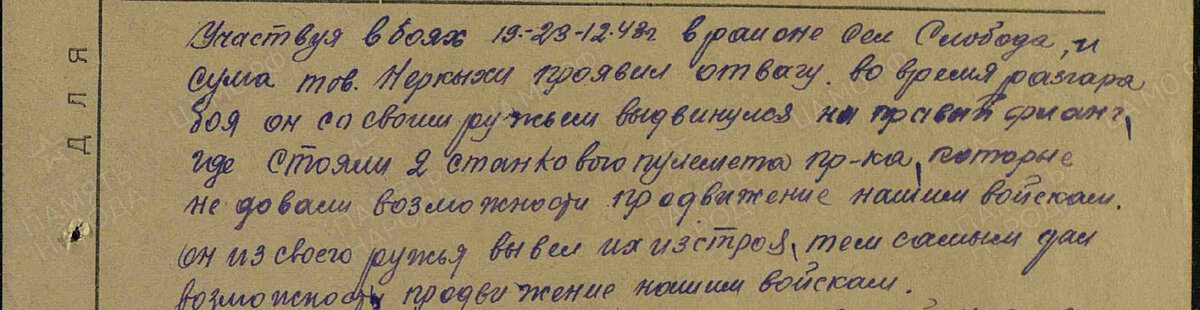 Участвуя в боях 19.-23-12.43г в районе сел Слобода, и
сума тов. Неркыхи проявил отвагу. во время разгара
боя он со своим ружьем выдвинулся на правый фланг,
где стояли 2 станкового пулемета пр-ка, которые
не довали возможности продвижение нашим войскам.
он из своего ружья вывел их из строя, тем самым дал
возможность продвижение нашим войскам.
ДЛЯ